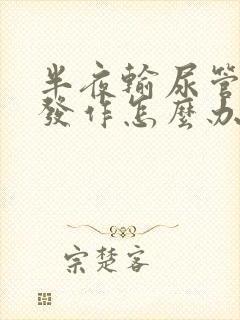 半夜輸尿管
發作怎麼办
宗楚客